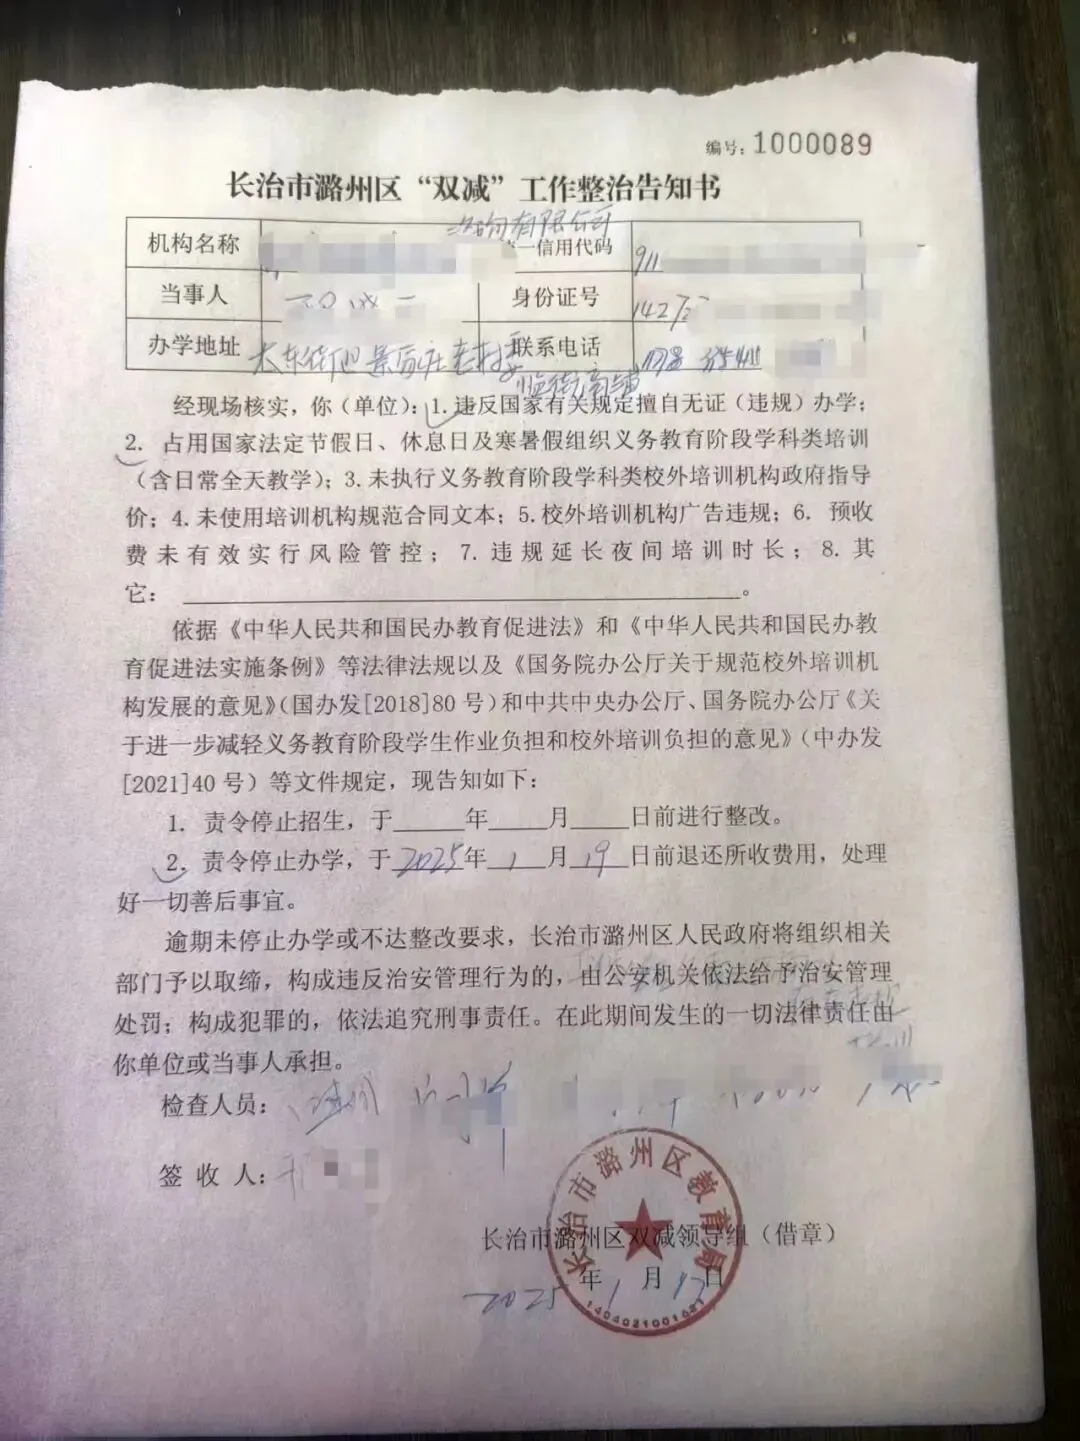 编号：1000089
长治市潞州区“双减”工作整治告知书
有限公司
机构名称 一信用代码 911
当事人 身份证号 142
办学地址 联系电话
大东街
临街商铺
经现场核实，你（单位）：1.违反国家有关规定擅自无证（违规）办学；
2. 占用国家法定节假日、休息日及寒暑假组织义务教育阶段学科类培训
（含日常全天教学）；3.未执行义务教育阶段学科类校外培训机构政府指导
价；4.未使用培训机构规范合同文本；5.校外培训机构广告违规；6. 预收
费未有效实行风险管控；7. 违规延长夜间培训时长；8. 其
它：。
依据《中华人民共和国民办教育促进法》和《中华人民共和国民办教
育促进法实施条例》等法律法规以及《国务院办公厅关于规范校外培训机
构发展的意见》（国办发[2018]80 号）和中共中央办公厅、国务院办公厅《关
于进一步减轻义务教育阶段学生作业负担和校外培训负担的意见》（中办发
[2021]40 号）等文件规定，现告知如下：
1. 责令停止招生，于 年 月 日前进行整改。
2. 责令停止办学，于 2025 年 1 月 19 日前退还所收费用，处理
好一切善后事宜。
逾期未停止办学或不达整改要求，长治市潞州区人民政府将组织相关
部门予以取缔，构成违反治安管理行为的，由公安机关依法给予治安管理
处罚；构成犯罪的，依法追究刑事责任。在此期间发生的一切法律责任由
你单位或当事人承担。
检查人员：
签 收 人：
长治市潞州区教育局
长治市潞州区双减领导组（借章）
2025 年 1 月 17 日